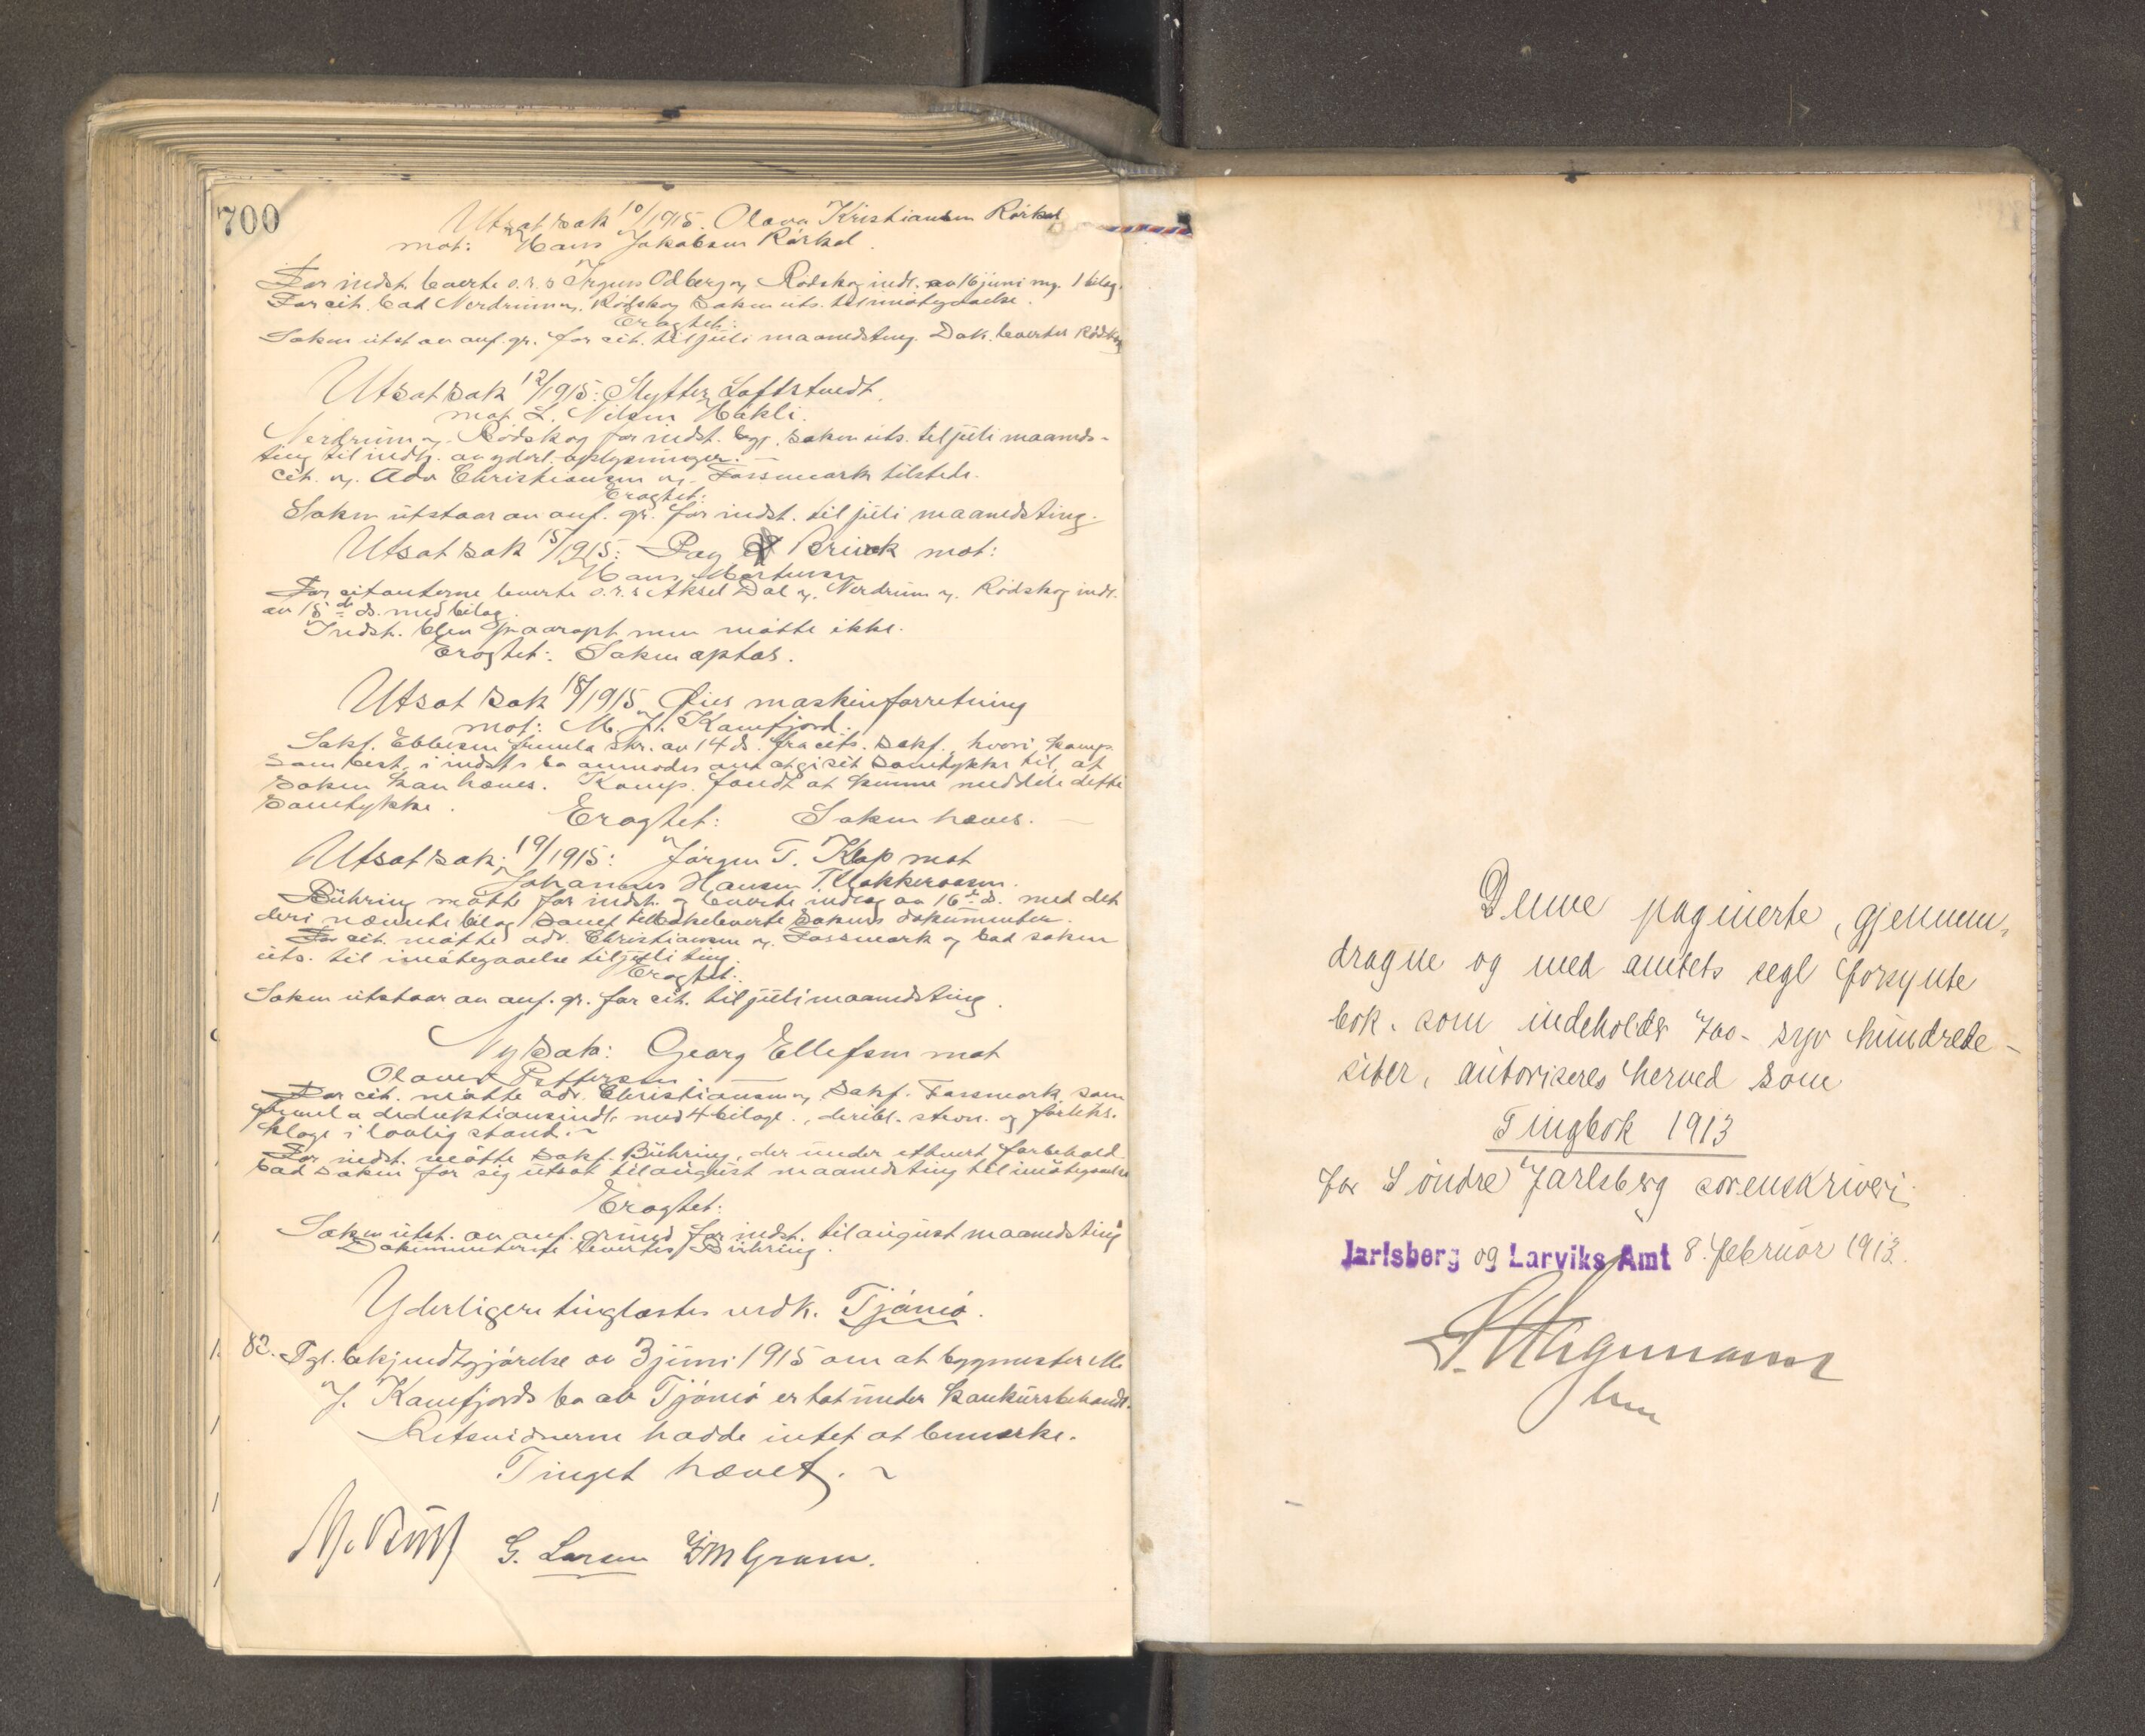 700
Utsat sak 10/1915. Olava Kristiansen Rørkol
mot: Hans Jakobsen Rørkol.
For indst. leverte o.r.s Odberg og Rødskog indl. av 16 juni mg. 1 bilag.
For cit. bad Nerdrum og Rødskog saken uts. til imøtegaaelse.
Eragtet:
Saken utst av anf. gr. for cit. til juli maanedsting. Dok. levertes Rødskog
Utsat sak 12/1915: Slytter Loftstuedt
mot L. Nilsen Hækli.
Nerdrum og Rødskog for indst. beg. saken uts. til juli maaneds-
ting til indh. av yderl. oplysninger. —
Cit. og Adv Christiansen og Fossmark tilstede.
Eragtet:
Saken utstaar av anf. gr. for indst. til juli maanedsting.
Utsat sak 15/1915: Pay & Brinck mot:
Hans Mortensen
For citanterne leverte o.r.s Aksel Dal og Nerdrum og Rødskog indl.
av 15de ds. med bilag.
Indst. blev paaropt men møtte ikke.
Eragtet: Saken optas.
Utsat sak 18/1915 Øies maskinforretning
mot: M. J. Kamfjord.
Sakf. Ebbesen freml a skr. av 14 ds. fra cits. sakf., hvori komp.
som best. i indst's bo anmodes om at gi sit samtykke til, at
saken kan hæves. Komp. fandt at kunne meddele dette
samtykke. Eragtet: Saken hæves. —
Utsat sak: 19/1915: Jørgen T. Klop mot
Johannes Hansen Klokkeraasen.
Bühring møtte for indst. og leverte indlæg av 16de ds. med det
deri nævnte bilag samt tilbakeleverte sakens dokumenter.
For cit. møtte adv. Christiansen og Fossmark og bad saken
uts. til imøtegaaelse til juli ting.
Eragtet:
Saken utstaar av anf. gr. for cit. til juli maanedsting.
Ny sak: Georg Ellefsen mot
Olaves Pettersen. —
For cit. møtte adv. Christiansen og Sakf. Fossmark som
freml a deduktionsindl. med 4 bilage., deribl. stevn. og forliks-
klage i lovlig stand. ~
For indst. møtte sakf. Bühring, der under ethvert forbehold
bad saken for sig utsat til august maanedsting til imøtegaaelse
Eragtet:
Saken utst. av anf. grund for indst. til august maanedsting
Dokumenterne levertes Bühring.
Yderligere tinglæstes vedk. Tjømø.
82. Tgl. bekjendtgjørelse av 3 juni 1915 om at bygmester M.
J. Kamfjords bo av Tjømø er tat under konkursbehandl.
Retsvidnerne hadde intet at bemerke.
Tinget hævet. ~
G. Larsen
Gram.
Denne paginerte, gjennem-
dragne og med amtets segl forsynte
bok, som indeholder 700 - syv hundrede -
sider, autoriseres herved som
Tingbok 1913
for Søndre Jarlsberg sorenskriveri.
Jarlsberg og Larviks Amt 8. februar 1913.